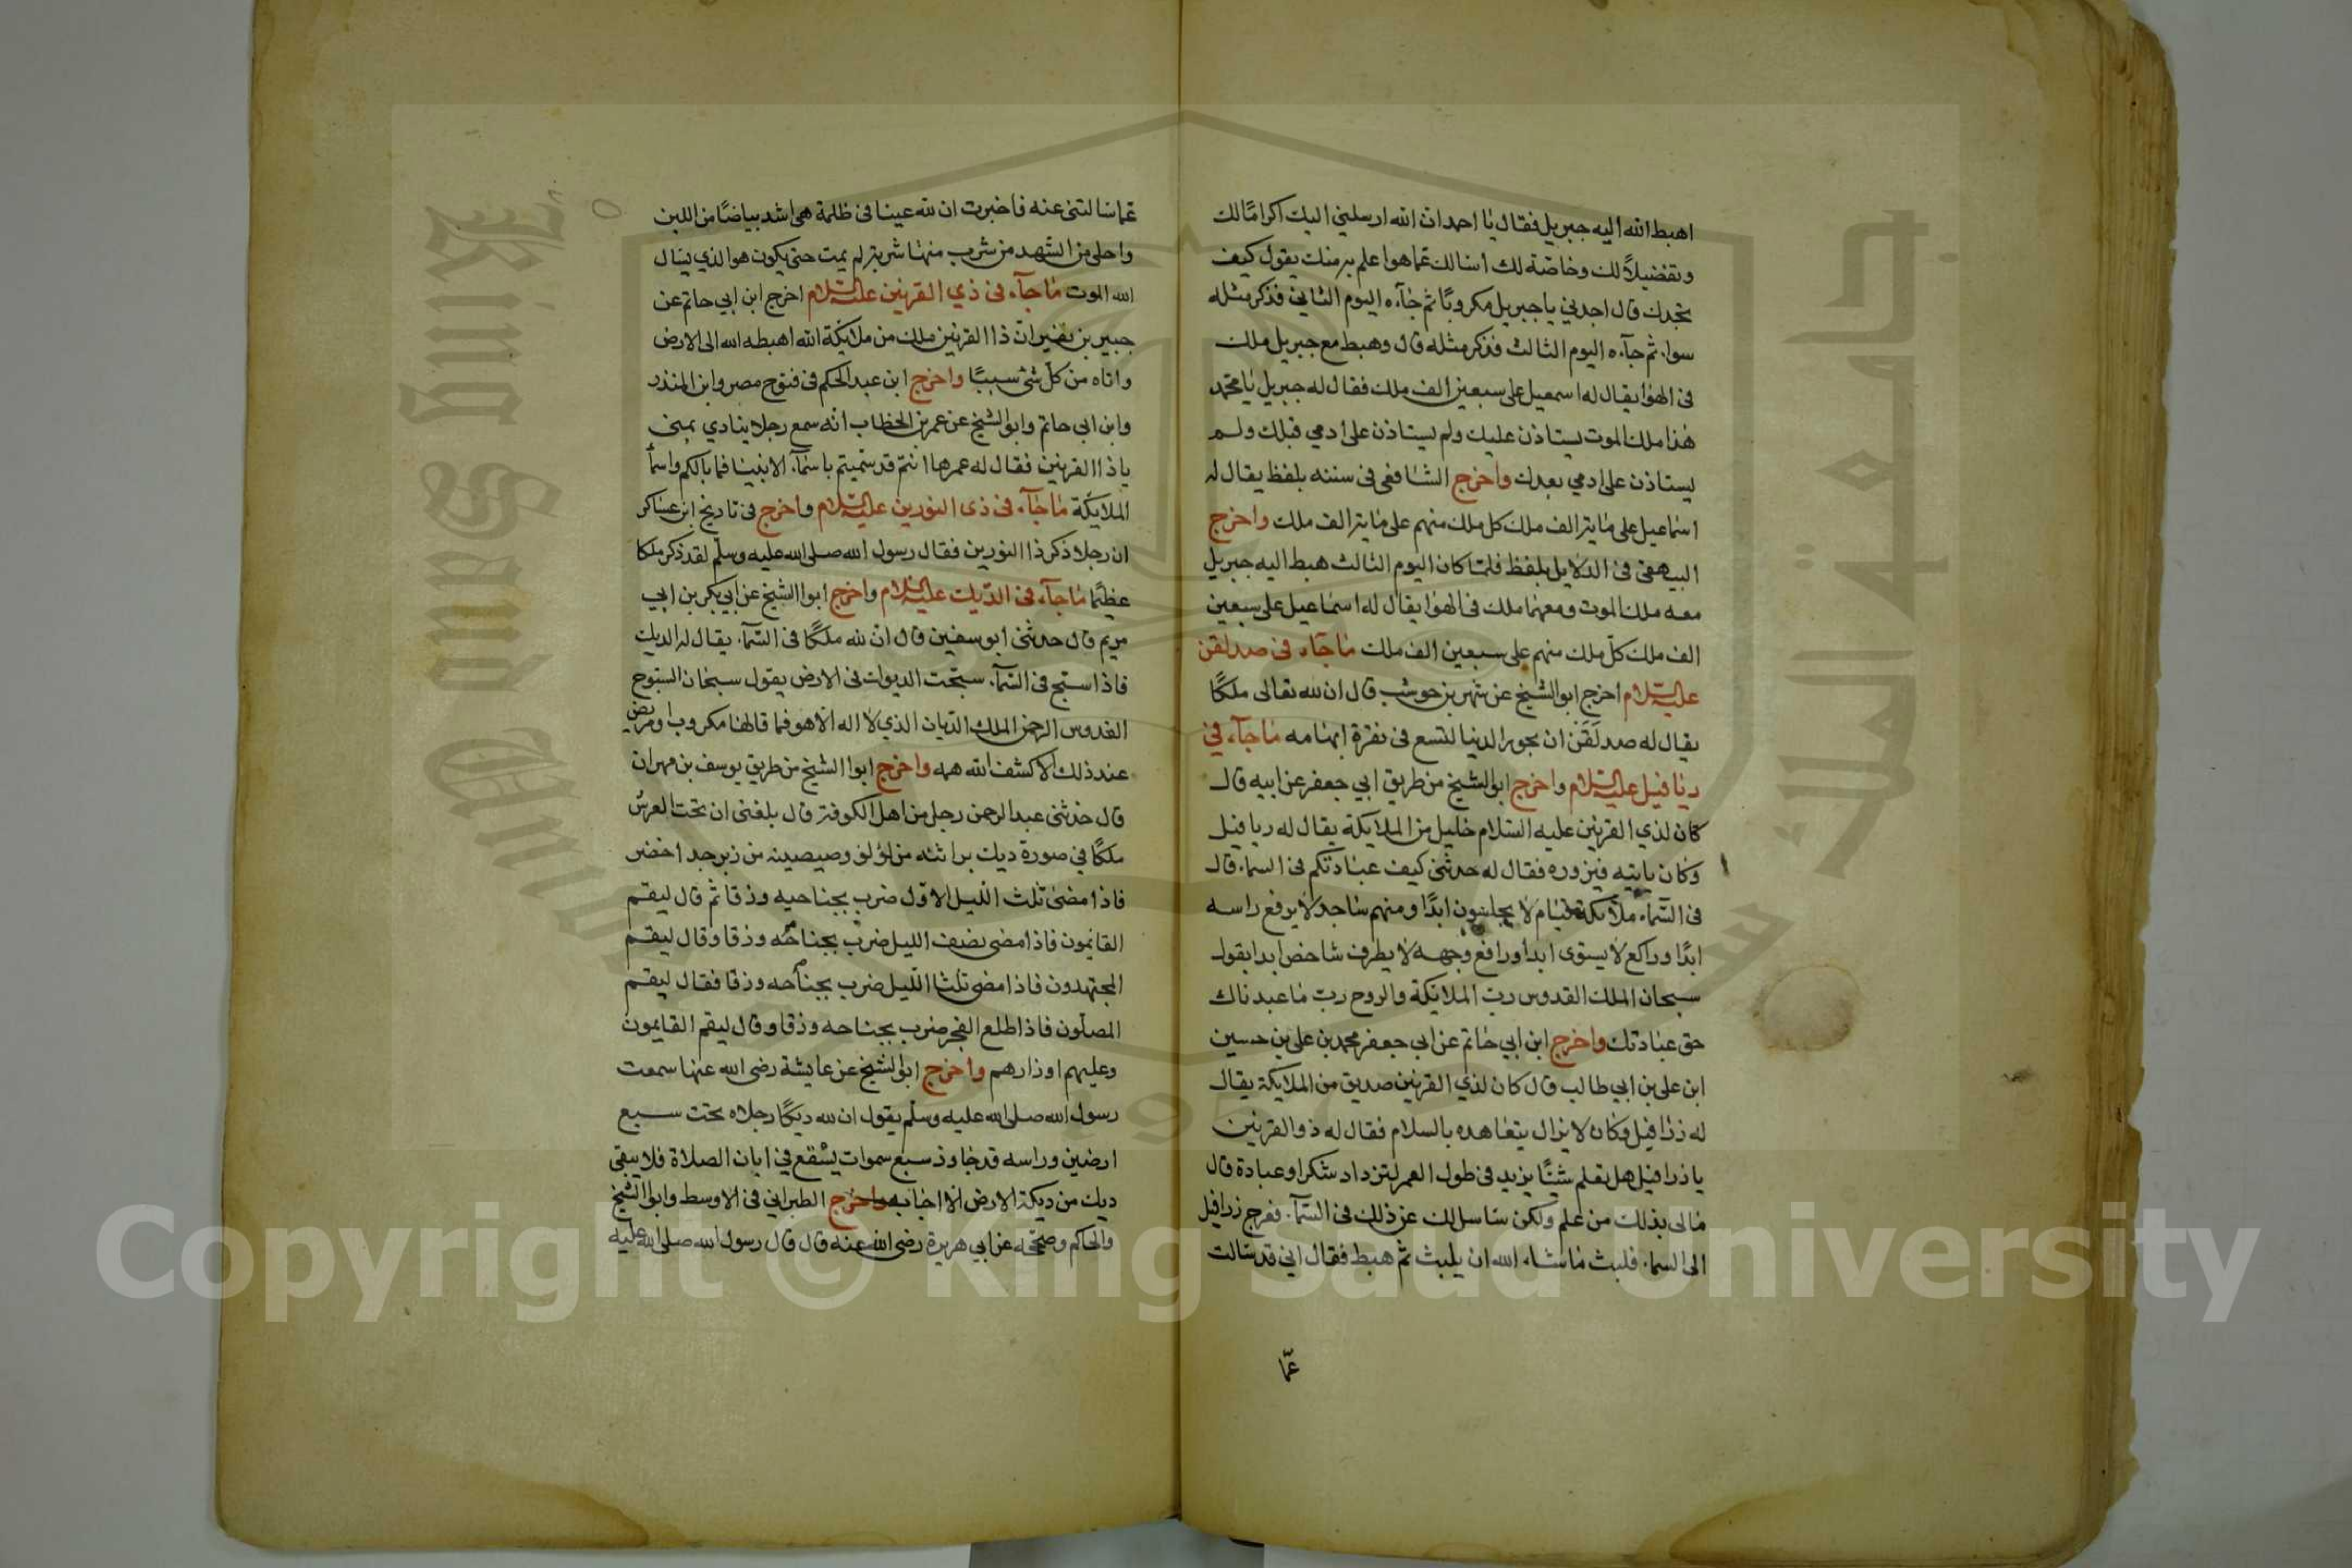 اهبط الله اليه جبريل فقال يا احمد ان الله ارسلني اليك اكراما لك
وتفضيلاً لك وخاصّة لك اسالك عما هو اعلم به منك يقول كيف
تجدك قال اجدني يا جبريل مكروبًا ثم جآءه اليوم الثاني فذكر مثله
سوا ثم جآءه اليوم الثالث فذكر مثله قال وهبط مع جبريل ملك
فى الهوا يقال له اسمعيل على سبعين الف ملك فقال له جبريل يا محمد
هذا ملك الموت يستاذن عليك ولم يستاذن على ادمي قبلك ولم
يستاذن على ادمي بعدك واخرج الشافعى فى سننه بلفظ يقال له
اسماعيل على ماية الف ملك كل ملك منهم على ماية الف ملك واخرج
البيهقى فى الدلايل بلفظ فلما كان اليوم الثالث هبط اليه جبريل
معه ملك الموت ومعهما ملك فى الهوا يقال له اسماعيل على سبعين
الف ملك كلّ ملك منهم على سبعين الف ملك ما جآء فى صدلقن
عليه السلام اخرج ابو الشيخ عن شهر بن حوشب قال ان لله تعالى ملكًا
يقال له صدلَقَن ان بحور الدنيا لتسع فى نقرة ابهامه ما جآء في
ريافيل عليه السلام واخرج ابو الشيخ من طريق ابي جعفر عن ابيه قال
كان لذي القرنين عليه السلام خليل من الملايكة يقال له ريافيل
وكان ياتيه فيزوره فقال له حدثنى كيف عبادتكم فى السماء قال
فى السّماء ملآئكة قيام لا يجلسون ابدًا ومنهم ساجد لا يرفع راسه
ابدًا وراكع لا يستوى ابدا ورافع وجهه لا يطرف شاخص ابدا يقول
سبحان الملك القدوس ربّ الملائكة والروح ربّ ما عبدناك
حق عبادتك واخرج ابن ابي حاتم عن ابى جعفر محمد بن على بن حسين
ابن على بن ابي طالب قال كان لذي القرنين صديق من الملايكة يقال
له زرافيل وكان لا يزال يتعاهده بالسلام فقال له ذو القرنين
يا زرافيل هل تعلم شيئًا يزيد فى طول العمر لنزداد شكرا وعبادة قال
مالى بذلك من علم ولكن ساسل لك عن ذلك فى السّمآء فعرج زرافيل
الى السماء فلبث ما شاء الله ان يلبث ثم هبط فقال اني قد سالت
عمّا
عما سالتنى عنه فاخبرت ان لله عينا فى ظلمة هى اشد بياضًا من اللبن
واحلى من الشّهد من شرب منها شربة لم يمت حتى يكون هو الذي يسال
الله الموت ما جآء فى ذي القرنين عليه السلام اخرج ابن ابي حاتم عن
جبير بن نفير ان ذا القرنين ملك من ملايكة الله اهبطه الله الى الارض
واتاه من كلّ شئ سببًا واخرج ابن عبد الحكم فى فتوح مصر وابن المنذر
وابن ابى حاتم وابو الشيخ عن عمر بن الخطاب انه سمع رجلا ينادي بمنى
يا ذا القرنين فقال له عمرها انتم قد سمّيتم باسمآء الانبيا فما بالكم واسمآ
الملايكة ما جآء فى ذى النورين عليه السلام واخرج فى تاريخ ابن عساكر
ان رجلا ذكر ذا النورين فقال رسول الله صلى الله عليه وسلّم لقد ذكر ملكا
عظيمًا ما جآء فى الدّيك عليه السلام واخرج ابوا الشيخ عن ابي بكر بن ابي
مريم قال حدثنى ابو سفين قال ان لله ملكًا فى السّمآء يقال له الديك
فاذا سبّح فى السّمآء سبّحت الديوك فى الارض يقول سبحان السبّوح
القدوس الرحمن الملك الدّيان الذي لا اله الّا هو فما قالها مكروب او مريض
عند ذلك الا كشف الله همه واخرج ابوا الشيخ من طريق يوسف بن مهران
قال حدثنى عبد الرحمن رجل من اهل الكوفة قال بلغنى ان تحت العرش
ملكًا في صورة ديك براثنه من لؤلؤ وصيصيته من زبرجد اخضر
فاذا مضىٰ ثلث اللّيل الاوّل ضرب بجناحيه وزقا ثم قال ليقم
القائمون فاذا مضى نصف الليل ضرب بجناحه وزقا وقال ليقم
المجتهدون فاذا مضى ثلثا اللّيل ضرب بجناحه وزقا فقال ليقم
المصلّون فاذا طلع الفجر ضرب بجناحه وزقا وقال ليقم القايمون
وعليهم اوزارهم واخرج ابو الشيخ عن عايشة رضى الله عنها سمعت
رسول الله صلى الله عليه وسلّم يقول ان لله ديكًا رجلاه تحت سبع
ارضين وراسه قد جاوز سبع سموات يسْقع في ابان الصلاة فلا يبقى
ديك من ديكة الارض الّا اجابه واخرج الطبراني فى الاوسط وابوا الشيخ
والحاكم وصحّحه عن ابي هريرة رضى الله عنه قال قال رسول الله صلى الله عليه
جامعة الملك سعود
King Saud University
1957
Copyright © King Saud University